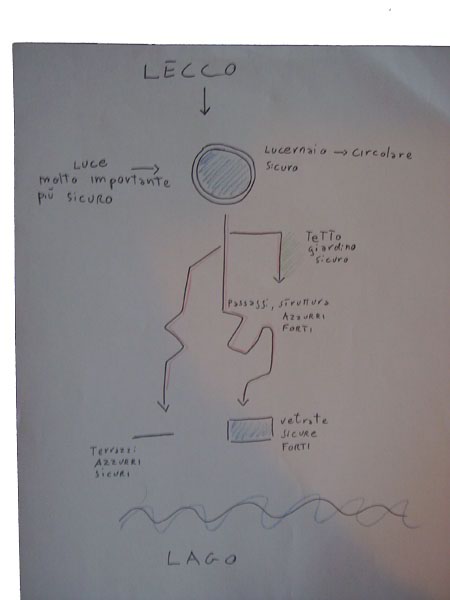 LECCO
LUCE
molto importante
più SICURO
Lucernaio → circolare
sicuro
TeTTo
giardino
sicuro
Passaggi, struttura
AZZURRI
FORTI
vetrate
SICURE
FORTI
Terrazzi
AZZURRI
SICURI
LAGO